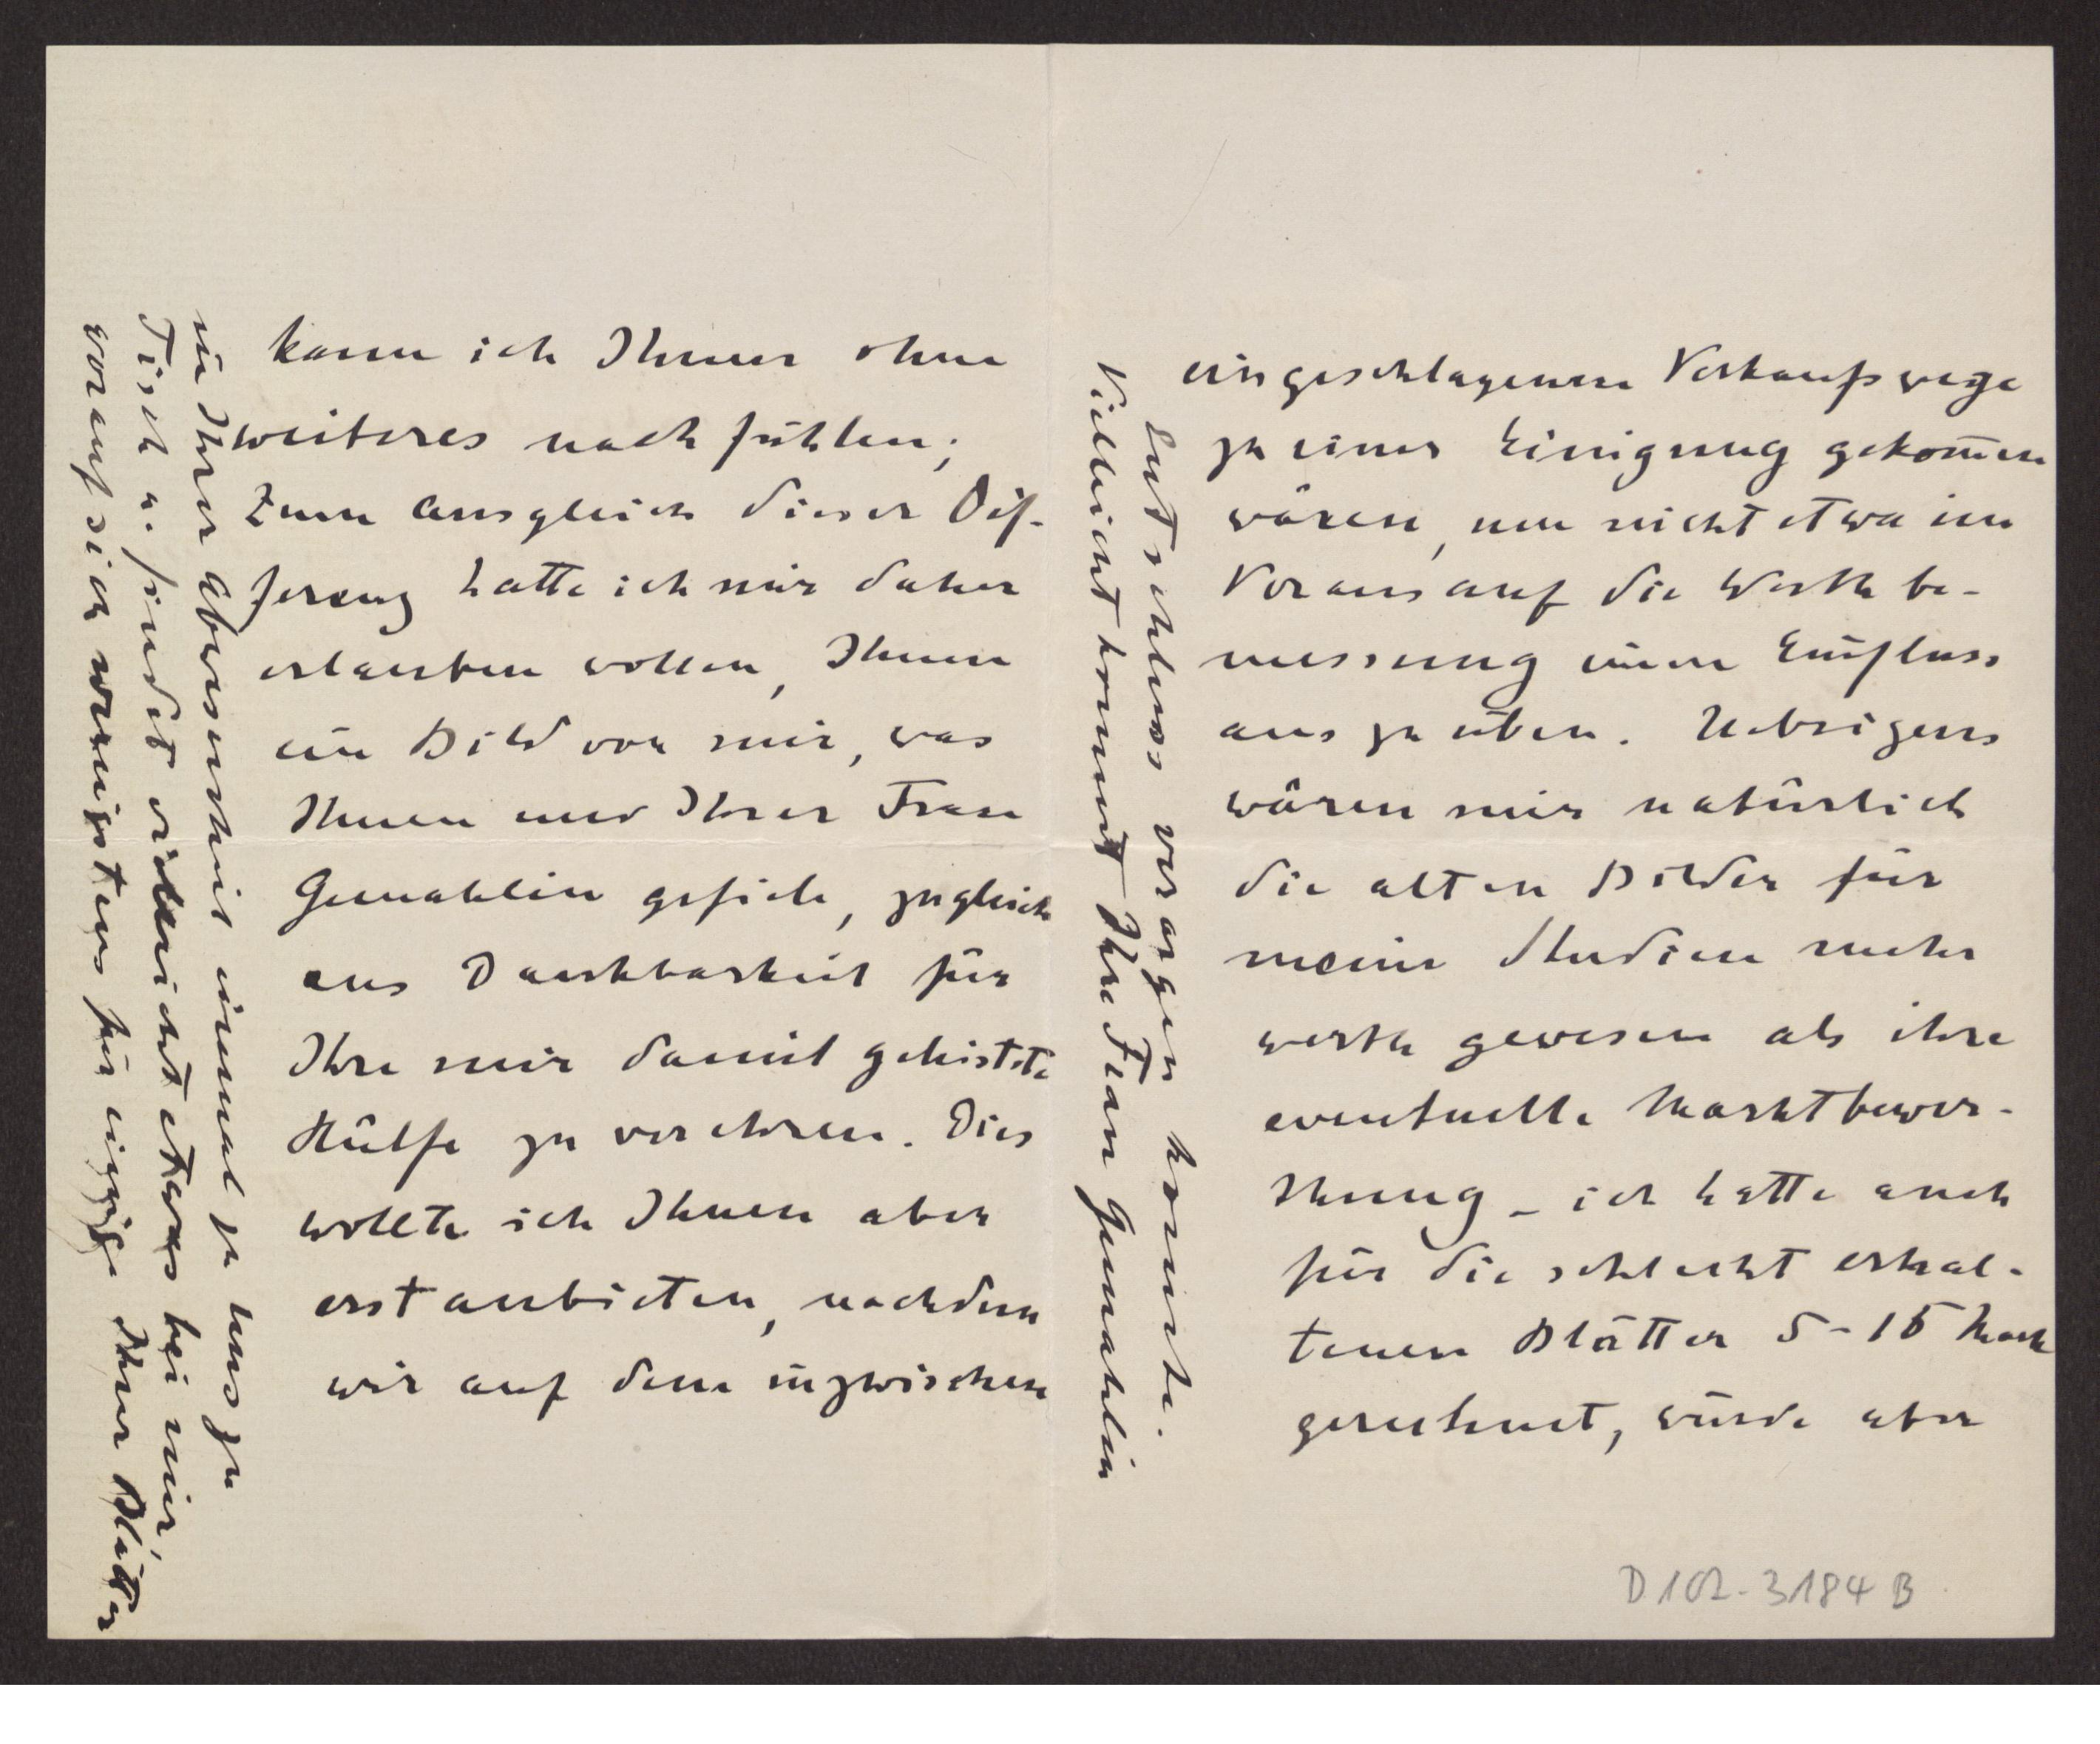 kann ich Ihnen ohne
weiteres nach fühlen;
Zum Ausgleich dieser Dif-
ferenz hatte ich mir daher
erlauben wollen, Ihnen
ein Bild von mir, was
Ihnen und Ihrer Frau
Gemahlin gefiele, zugleich
aus Dankbarkeit für
Ihre mir damit geleistete
Hülfe zu verehren. Dies
wollte ich Ihnen aber
erst anbieten, nachdem
wir auf dem inzwischen
eingeschlagenen Verkaufswege
zu einer Einigung gekom̄en
wären, um nicht etwa im
Voraus auf die Werthbe-
messung einen Einfluss
auszuüben. Uebrigens
wären mir natürlich
die alten Bilder für
meine Studien mehr
werth gewesen als ihre
eventuelle Marktbewer-
thung - ich hatte auch
für die schlecht erhal-
tenen Blätter 5-15 Mark
gerechnet, würde aber
Entschluss verargen konnte.
Vielleicht kommt Ihre Frau Gemahlin
in Ihrer Abwesenheit einmal zu uns zu
Tisch u. findet vielleicht etwas bei mir,
worauf sich wenigstens für einige Ihrer Blätter
D 102-3184 B